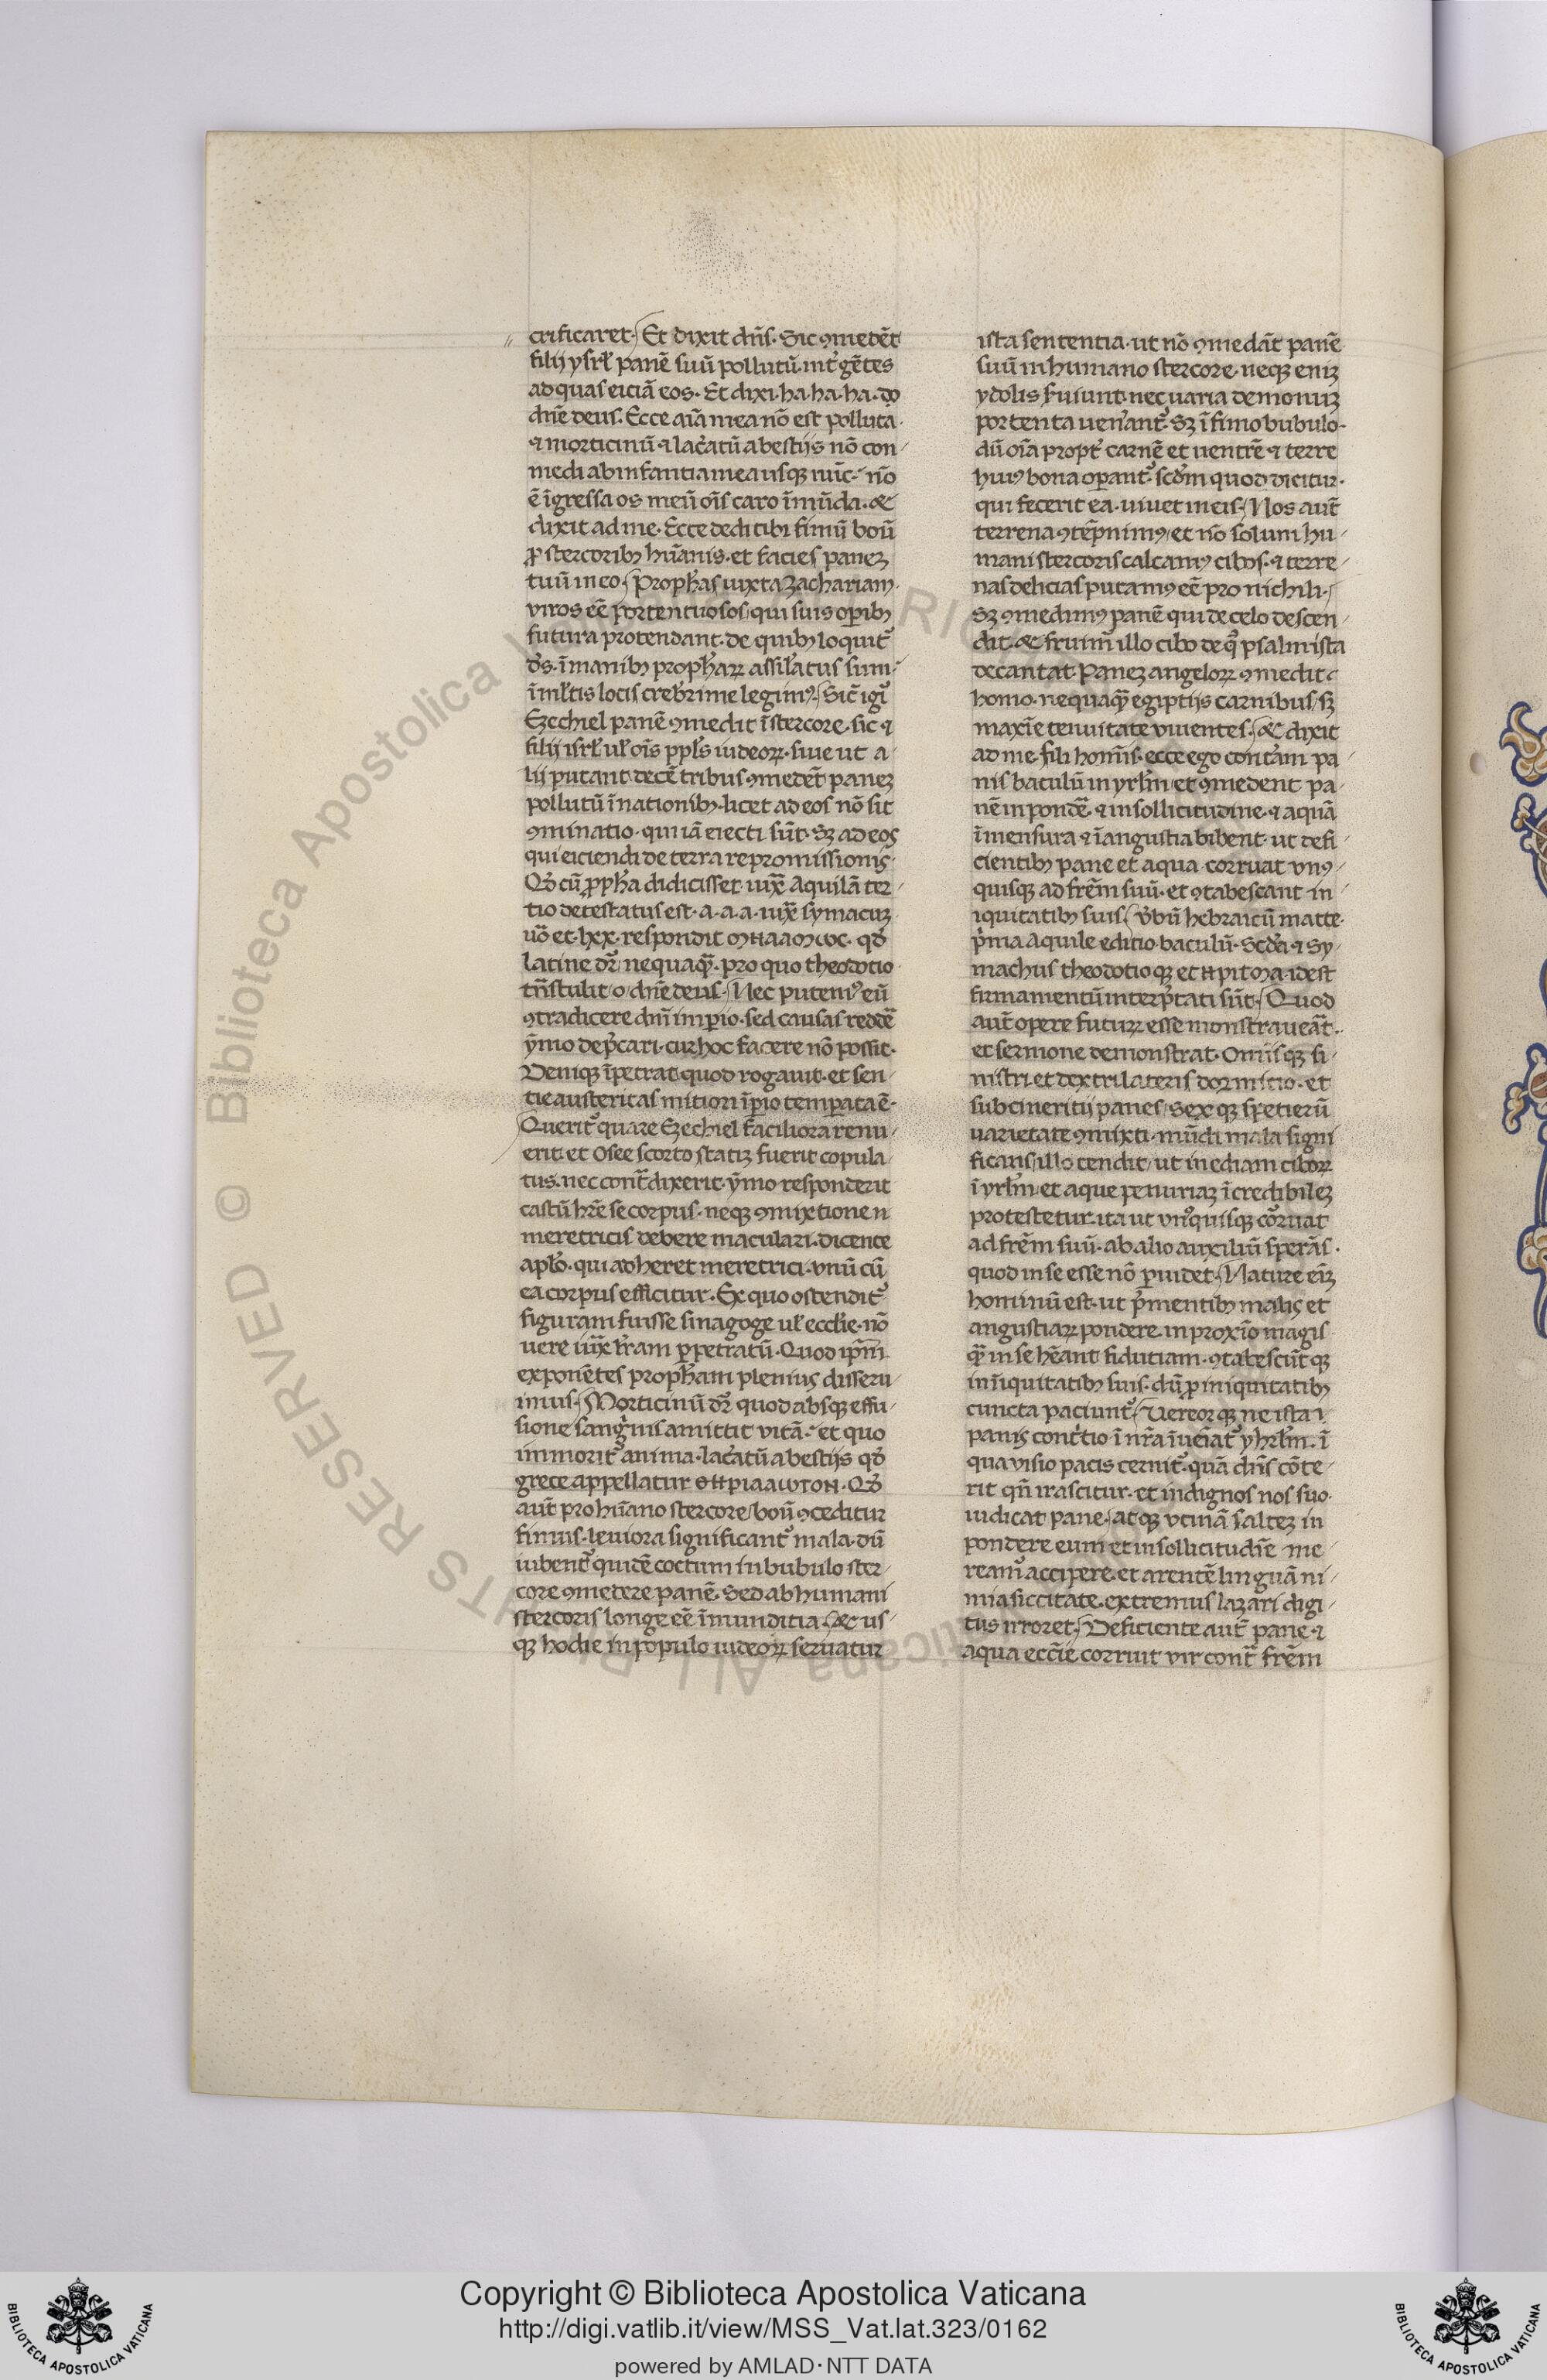 crificaret. Et dixit dñs. Sic ꝯmedēt
filij ysrl̄ panē suū pollutū int̾ gētes
ad quas eiciā eos. Et dixi. ha. ha. ha. do
dñe deus. Ecce aīa mea nō est polluta.
⁊ morticinū ⁊ lac̾atū a bestijs nō con-
medi ab infantia mea usqꝫ nūc. nō
ē īgressa os meū oīs caro īmūda. &
dixit ad me. Ecce dedi tibi fimū boū
ꝓ stercoribꝫ hūanis. et facies paneꝫ
tuū in eo. Proph̾as iuxta Zachariam.
viros eē portentuosos qui suis oꝑibꝫ
futura protendant. de quibꝫ loquit᷑
dn̄s. ī manibꝫ proph̾aꝝ assil̾atus sum.
ī ml̾tis locis creb̾rime legimꝰ. Sic̄ igi᷑
Ezechiel panē ꝯmedit ī stercore. sic ⁊
filij isrl̄ ul̾ oīs ppl̾s iudeoꝝ. siue ut a-
lij putant decē tribus ꝯmedēt paneꝫ
pollutū ī nationibꝫ. licet ad eos nō sit
ꝯminatio. qui iā eiecti sūt. Sꝫ ad eos
qui eiciendi de terra repromissionis.
Qd̾ cū ꝓph̾a didicisset. iux̄ Aquilā ter-
tio detestatus est. a. a. a. iux̄ symacuꝫ
uō et. lxx. respondit ΜΗΔΑΜωC. qd̾
latine dr̄ nequaq̄. pro quo theodotio
tn̄stulit o dñe deus. Nec putemꝰ eū
ꝯtradicere dn̄i imꝑio. sed causas reddē
ymo dep̾cari. cur hoc facere nō possit.
Deniqꝫ īpetrat quod rogauit. et sen-
tie austeritas mitiori īꝑio temꝑata ē.
Querit᷑ quare Ezechiel faciliora renu-
erit. et Osee scorto statiꝫ fuerit copula
tus. nec cont̄dixerit. ymo responderit
castū hr̄e se corpus. neqꝫ ꝯmixtionen
meretricis debere maculari. dicente
apl̾o. qui adheret meretrici. vnū cū
ea corpus efficitur. Ex quo ostendit᷑
figuram fuisse sinagoge ul̾ eccl̾ie. nō
uere iux̄ lr̄am ꝑpetratū. Quod ip̄m
exponētes proph̾am plenius disseru-
imus. Morticinū dr̄ quod absqꝫ effu-
sione sang̾nis amittit vitā. et quo
immorit᷑ anima. lac̾atū a bestijs qd̾
grece appellatur ΘΗΡΙΑΛωΤΟΝ. Qd̾
aut̄ pro hūano stercore boū ꝯceditur
fimus. leuiora significant᷑ mala. dū
iubent᷑ quidē coctum in bubulo ster-
core ꝯmedere panē. Sed ab humani
stercoris longe eē īmunditia. & us-
qꝫ hodie in populo iudeoꝝ seruatur
ista sententia. ut nō ꝯmedāt panē
suū in humano stercore. neqꝫ eniꝫ
ydolis s̾uiunt. nec uaria demoniuꝫ
portenta uen̾ant᷑. Sꝫ ī fimo bubulo.
dū oīa propt̾ carnē et uentrē ⁊ terre
huiꝰ bona oꝑant᷑. scd̾m quod dicitur.
qui fecerit ea. uiuet in eis. Nos aut̄
terrena ꝯtēpnimꝰ et nō solum hu-
mani stercoris calcamꝰ cibos. ⁊ terre-
nas delicias putamꝰ eē pro nichili.
Sꝫ ꝯmedimꝰ panē qui de celo descen-
dit. & fruim᷑ illo cibo de q̾ psalmista
decantat. Paneꝫ angeloꝝ ꝯmedit
homo. nequaq̄ egiptijs carnibus sꝫ
maxīe tenuitate viuentes. & dixit
ad me. fili homīs. ecce ego cont̾am pa
nis baculū in yrl̾m et ꝯmedent pa-
nē in pondē. ⁊ in sollicitudine. ⁊ aquā
ī mensura ⁊ ī angustia bibent. ut defi-
cientibꝫ pane et aqua corruat vnꝰ-
quisqꝫ ad frēm suū. et ꝯtabescant in
iquitatibꝫ suis. V̾bū hebraicū matte.
p̾ma Aquile editio. baculū. Scd̾a ⁊ Sy-
machus theodotio qꝫ et CΤΗΡΙΓΜΑ. id est
firmamentū interp̾tati sūt. Quod
aut̄ opere futuꝝ esse monstraueāt.
et sermone demonstrat. Omīsqꝫ si-
nistri et dextri lateris dormitio. et
subcineritij panes sex qꝫ spetierū
uarietate ꝯmixti. mūdi mala signi
ficans. illo tendit. ut inediam ciboꝝ
ī yrl̾m et aque penuriaꝫ īcredibileꝫ
protestetur. ita ut vnꝰquisqꝫ corruat
ad frēm suū. ab alio auxiliū sperās.
quod in se esse nō ꝑuidet. Nature eīꝫ
hominū est. ut p̾mentibꝫ malis et
angustiaꝝ pondere. in proxīo magis
q̄ in se hēant fidutiam. ꝯtabescūt qꝫ
in iniquitatibꝫ suis. dū ꝓ iniquitatibꝫ
cuncta paciunt᷑. Vereor qꝫ ne ista i
panis cont̾tio ī nr̄a īueniat᷑ yhrl̾m. ī
qua visio pacis cernit᷑. quā dn̄s cōte-
rit qn̄ irascitur. et indignos nos suo
iudicat pane. atqꝫ vtinā salteꝫ in
pondere eum et in sollicitudīe me-
ream᷑ accipere. et arentē linguā ni-
mia siccitate. extremus lazari digi-
tus irroret. Deficiente aut̄ pane ⁊
aqua eccl̄ie corruit vir cont̄ frēm
Copyright © Biblioteca Apostolica Vaticana
http://digi.vatlib.it/view/MSS_Vat.lat.323/0162
powered by AMLAD·NTT DATA
BIBLIOTECA APOSTOLICA VATICANA
BIBLIOTECA APOSTOLICA VATICANA